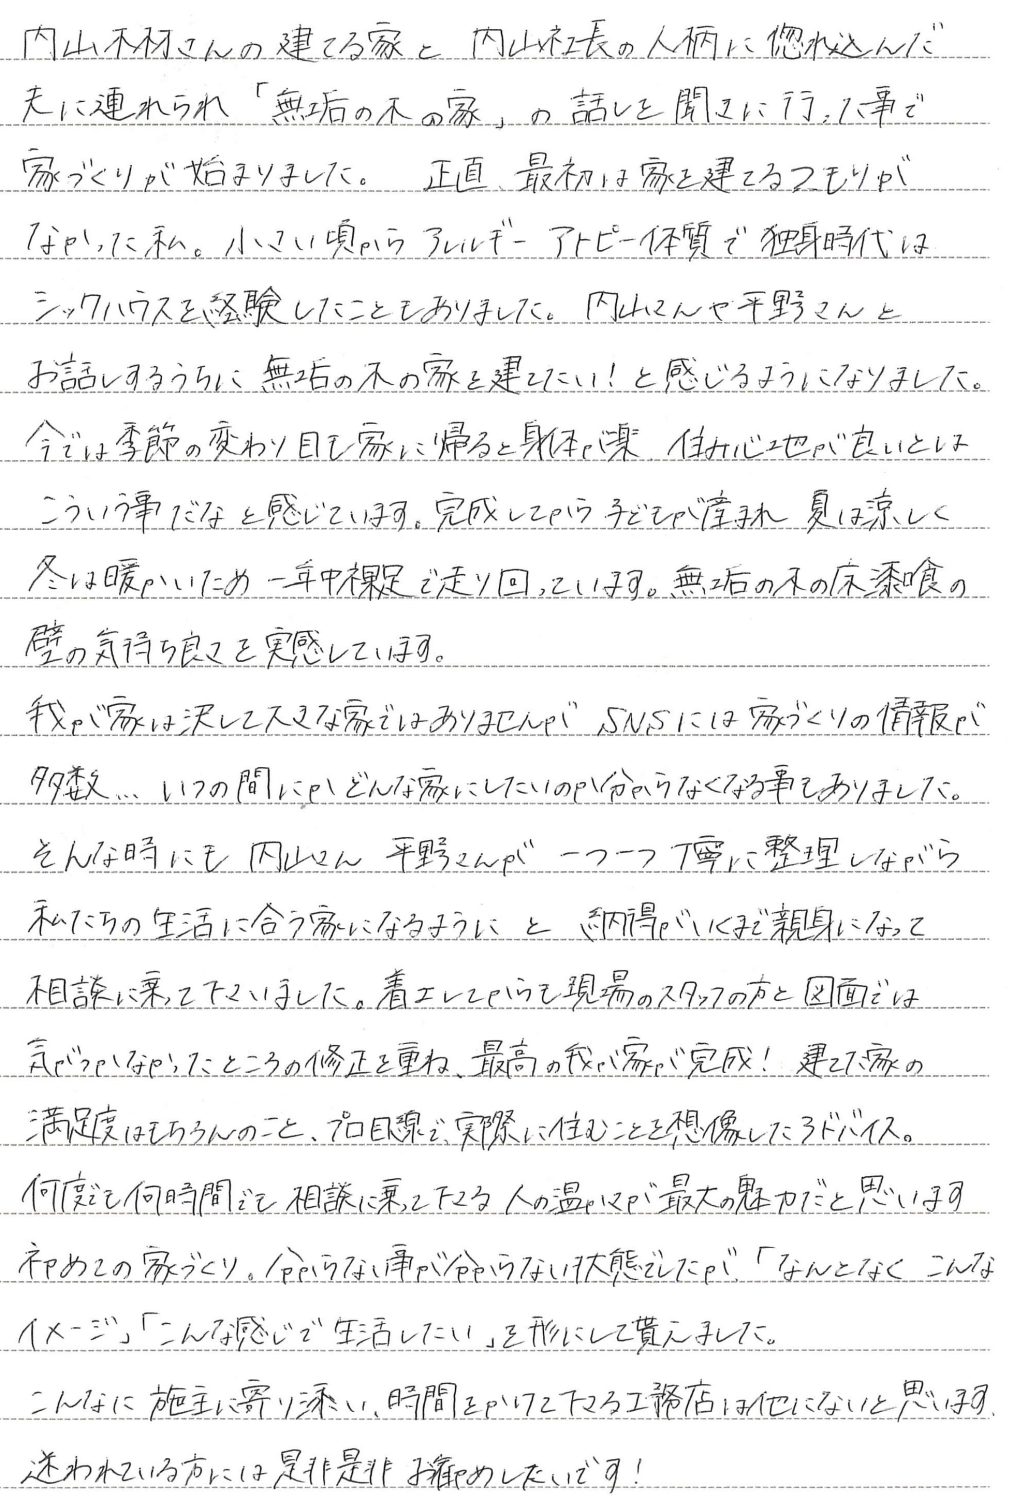 内山木材さんの建てる家と 内山社長の人柄に惚れ込んだ
夫に連れられ「無垢の木の家」の話しを聞きに行った事で
家づくりが始まりました。 正直、最初は家を建てるつもりが
なかった私。小さい頃から アレルギー アトピー体質で 独身時代は
シックハウスを経験したこともありました。 内山さんや平野さんと
お話しするうちに 無垢の木の家を建てたい！と感じるようになりました。
今では季節の変わり目も家に帰ると身体が楽、住み心地が良いとは
こういう事だなと感じています。完成してから子どもが産まれ 夏は涼しく
冬は暖かいため 一年中裸足で走り回っています。無垢の木の床漆喰の
壁の気持ち良さを実感しています。
我が家は決して大きな家ではありませんが SNSには家づくりの情報が
多数… いつの間にか どんな家にしたいのか分からなくなる事もありました。
そんな時にも 内山さん 平野さんが 一つ一つ丁寧に整理しながら
私たちの生活に合う家になるように と 納得がいくまで親身になって
相談に乗って下さいました。着工してからも現場のスタッフの方と図面では
気がつかなかったところの修正を重ね、最高の我が家が完成！ 建てた家の
満足度はもちろんのこと、プロ目線で、実際に住むことを想像したアドバイス。
何度でも何時間でも 相談に乗って下さる 人の温かさが最大の魅力だと思います
初めての家づくり。分からない事が分からない状態でしたが、「なんとなく こんな
イメージ」「こんな感じで生活したい」を形にして貰えました。
こんなに 施主に寄り添い、時間をかけて下さる工務店は他にないと思います。
迷われている方には是非是非 お勧めしたいです！